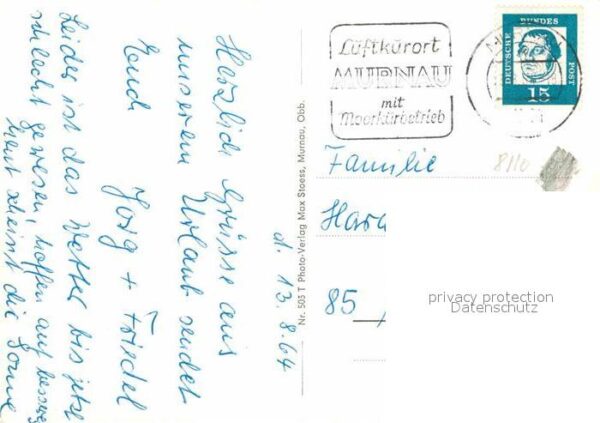 d. 13.8.64
Herzliche Grüsse aus
unserem Urlaub sendet
Euch
Jörg + Friedel
Leider ist das Wetter bis jetzt
schlecht gewesen, hoffen auf besseres
Heut scheint die Sonne
Nr. 505 T Photo-Verlag Max Stoess, Murnau, Obb.
Luftkurort
MURNAU
mit
Moorkurbetrieb
DEUTSCHE
BUNDES
POST
15
8110
Familie
Hara
85
privacy protection
Datenschutz